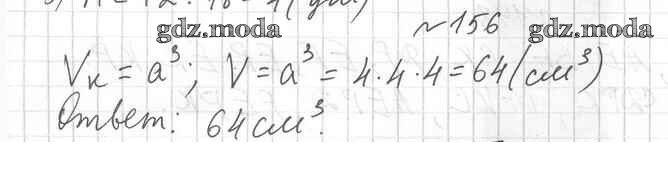 gdz.moda gdz.moda
~156
Vк = a³; V = a³ = 4·4·4 = 64 (см³)
Ответ: 64 см³.